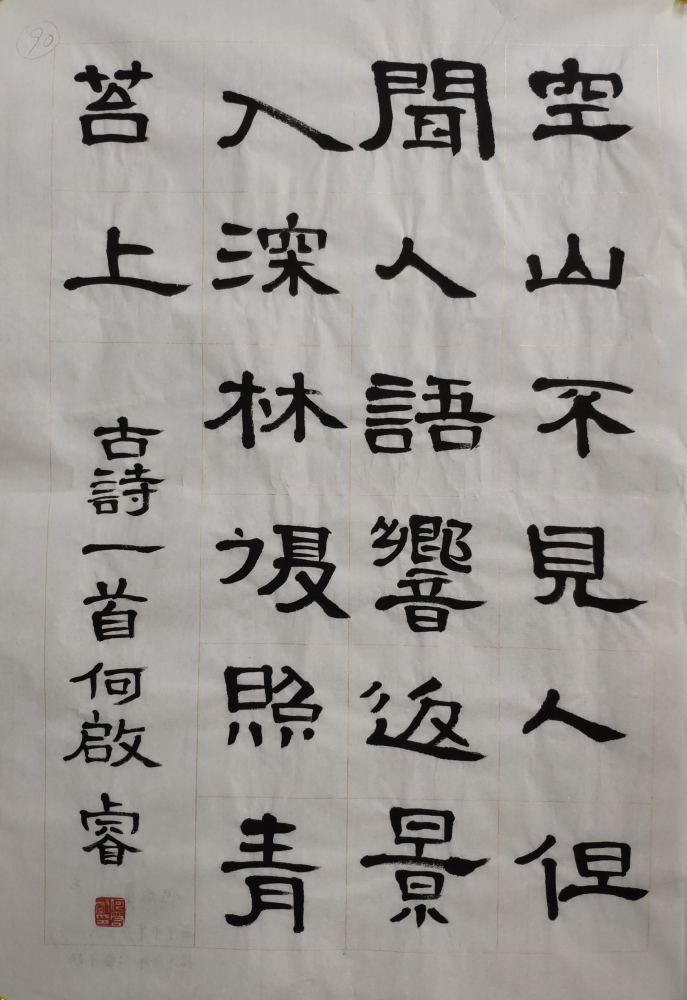 空山不見人但
聞人語響返景
入深林復照青
苔上
古詩一首何啟睿
90